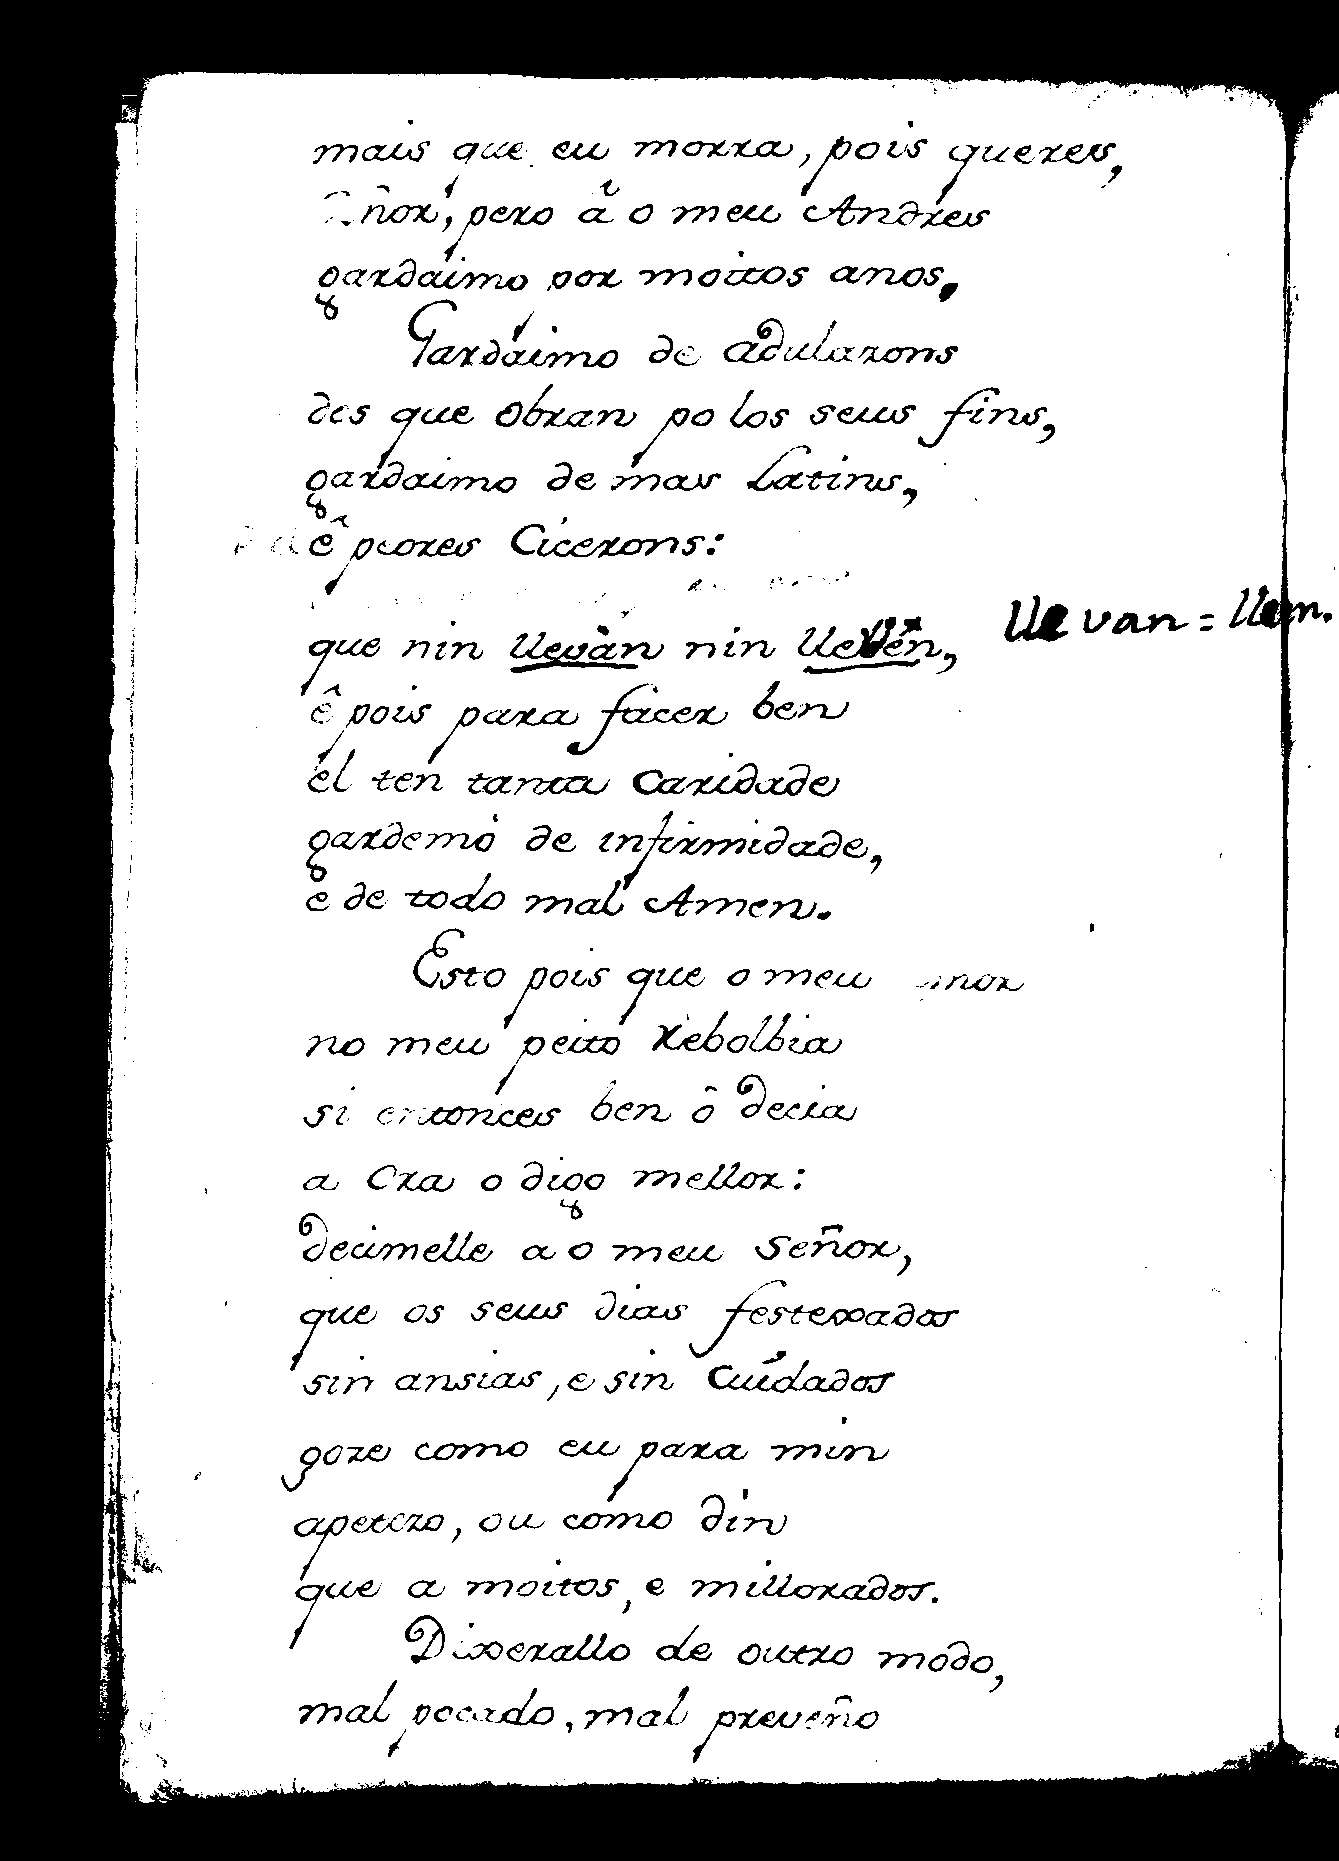 mais que eu morra, pois queres,
ñor, pero â o meu Andres
gardaimo por moitos anos.
Gardaimo de adularons
des que obran po los seus fins,
gardaimo de mas Latins,
ê peores Cicerons:
que nin llevan nin lleven, llevan = llem.
ê pois para facer ben
el ten tanta Caridade
gardemo de infirmidade,
e de todo mal Amen.
Esto pois que o meu
no meu peito rebolbia
si entonces ben ô decia
a Ora o digo mellor:
decimelle a o meu Señor,
que os seus dias festexados
sin ansias, e sin Cuidados
goze como eu para min
apetezo, ou como din
que a moitos, e millorados.
Dixerallo de outro modo,
mal pecado, mal preveño